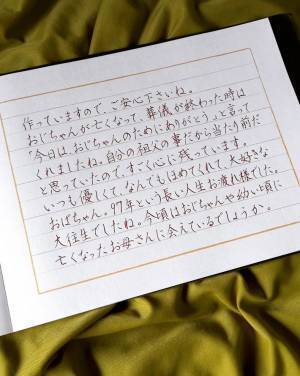 作っていますので、ご安心下さいね。
おじちゃんが亡くなって、葬儀が終わった時は
「今日は、おじちゃんのためにありがとう。」と言って
くれましたね。自分の祖父の事だから当たり前だ
と思っていたので、すごく心に残っています。
いつも優しくて、なんでもほめてくれて、大好きな
おばちゃん。97年という長い人生お疲れ様でした。
大往生でしたね。今頃はおじちゃんや幼い頃に
亡くなったお母さんに会えているでしょうか。